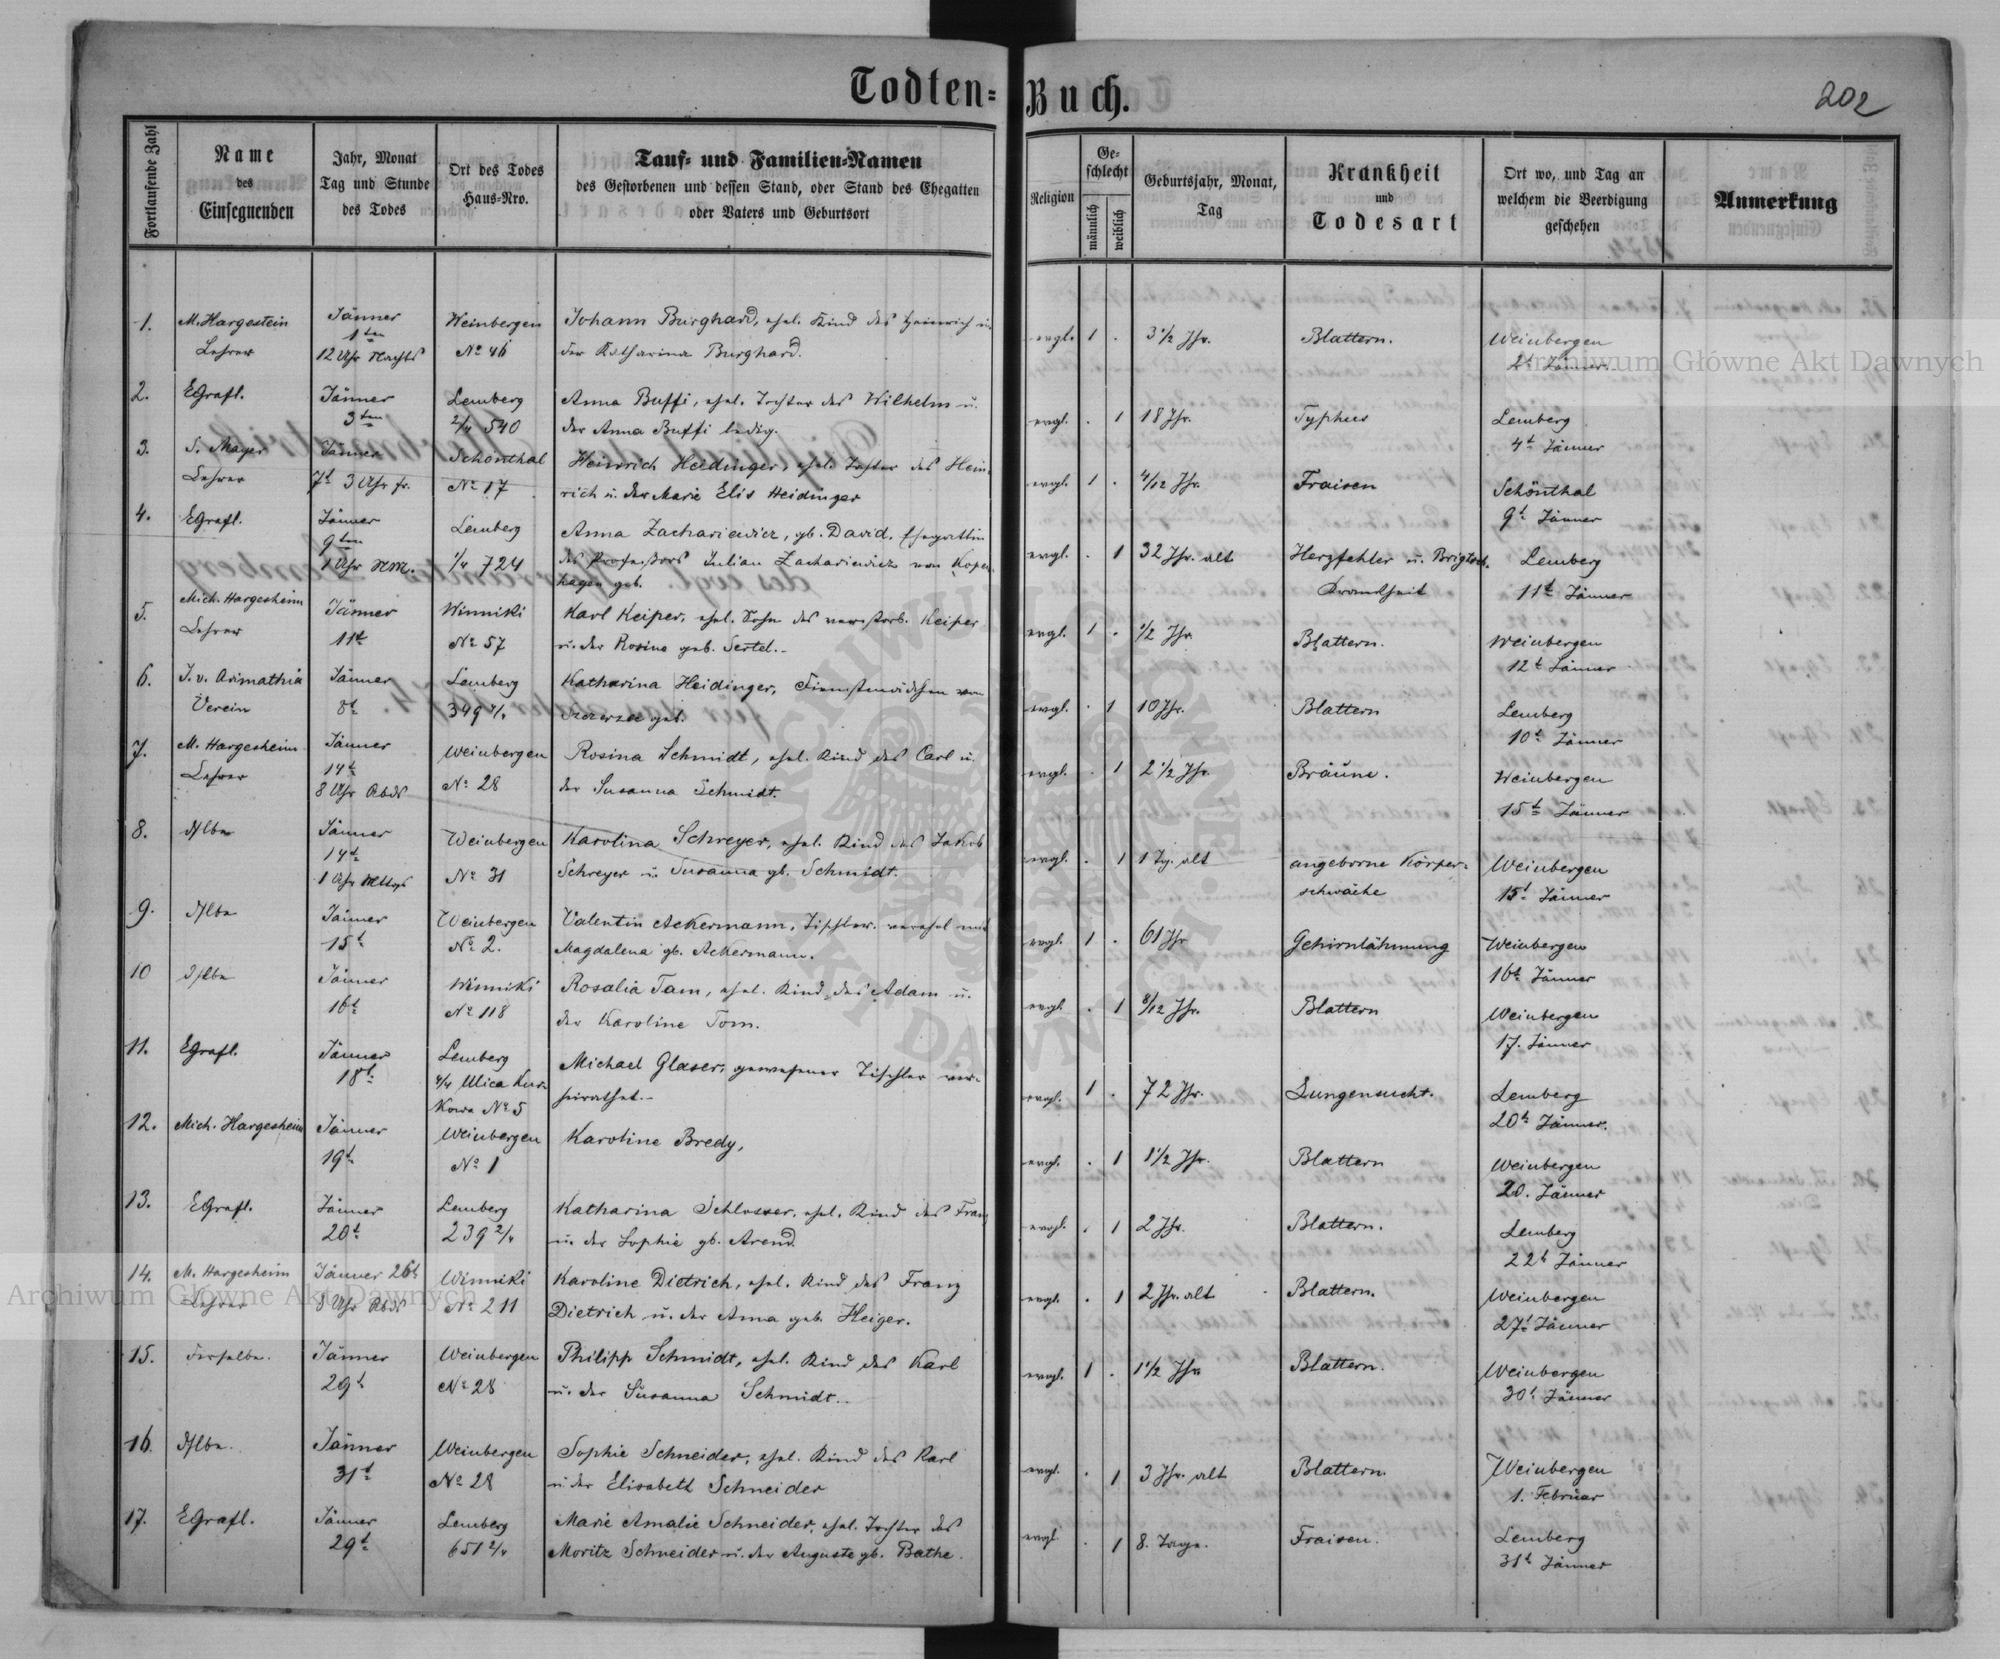 Todten-Buch.
202
Fortlaufende Zahl
Name
des
Einsegnenden
Jahr, Monat
Tag und Stunde
des Todes
Ort des Todes
Haus-Nro.
Tauf- und Familien-Namen
des Gestorbenen und dessen Stand, oder Stand des Ehegatten
oder Vaters und Geburtsort
Religion
Ge-
schlecht
männlich
weiblich
Geburtsjahr, Monat,
Tag
Krankheit
und
Todesart
Ort wo, und Tag an
welchem die Beerdigung
geschehen
Anmerkung
1. M. Hargestein Jänner Weinbergen Johann Burghard, ehel. Kind des Heinrich u. evgl. 1 . 3 1/2 Jhr. Blattern. Weinbergen
Lehrer 1ten 12 Uhr Nachts No 46 der Katharina Burghard. 2t Jänner
2. EGrafl. Jänner Lemberg Anna Buffi, ehel. Tochter des Wilhelm u. evgl. . 1 18 Jhr. Typhus Lemberg
3ten 2/4 540 der Anna Buffi ledig. 4t Jänner
3. S. Mayer Jänner Schönthal Heinrich Heidinger, ehel. des Hein- evgl. 1 . 4/12 Jhr. Fraisen Schönthal
Lehrer 7t 3 Uhr fr. No 17 rich u. der Marie Elis Heidinger 9t Jänner
4. EGrafl. Jänner Lemberg Anna Zachariewicz, gb. David, Ehegattin evgl. . 1 32 Jhr. alt Herzfehler u. Lemberg
9ten 1 Uhr NM. 1/4 724 des Professors Julian Zachariewicz von Kopen- Krankheit 11t Jänner
hagen geb.
5. Mich. Hargesheim Jänner Winniki Karl Keiper, ehel. Sohn des verstorb. Keiper evgl. 1 . 1/2 Jhr. Blattern. Weinbergen
Lehrer 11t No 57 u. der Rosina geb. Sertel. 12t Jänner
6. J. v. Arimathia Jänner Lemberg Katharina Heidinger, von evgl. . 1 10 Jhr. Blattern Lemberg
Verein 8t 349 4/4 Szczerzec geb. 10t Jänner
7. M. Hargesheim Jänner Weinbergen Rosina Schmidt, ehel. Kind des Carl u. evgl. . 1 2 1/2 Jhr. Bräune. Weinbergen
Lehrer 14t 8 Uhr Abds No 28 der Susanna Schmidt. 15t Jänner
8. dslbe Jänner Weinbergen Karolina Schreyer, ehel. Kind des Jakob evgl. . 1 1 Tg. alt angeborne Körper- Weinbergen
14t 1 Uhr Mttgs No 31 Schreyer u. Susanna gb. Schmidt. schwäche 15t Jänner
9. dslbe Jänner Weinbergen Valentin Ackermann, Tischler. verehel mit evgl. 1 . 61 Jhr Gehirnlähmung Weinbergen
15t No 2. Magdalena gb. Ackermann. 16t Jänner
10 dslbe Jänner Winniki Rosalia Tam, ehel. Kind des Adam u. evgl. . 1 8/12 Jhr. Blattern Weinbergen
16t No 118 der Karoline Tom. 17. Jänner
11. EGrafl. Jänner Lemberg Michael Glaser, gewesener Tischler ver- evgl. 1 . 72 Jhr. Lungensucht. Lemberg
18t 4/4 Ulica Kur- heirathet. 20t Jänner.
kowa No 5
12. Mich. Hargesheim Jänner Weinbergen Karoline Bredy, evgl. . 1 1 1/2 Jhr. Blattern Weinbergen
19t No 1 20. Jänner
13. EGrafl. Jänner Lemberg Katharina Schlosser, ehel. Kind des Franz evgl. . 1 2 Jhr. Blattern. Lemberg
20t 239 2/4 u. der Sophie gb. Arend. 22t Jänner
14. M. Hargesheim Jänner 26t Winniki Karoline Dietrich, ehel. Kind des Franz evgl. . 1 2 Jhr. alt Blattern. Weinbergen
Lehrer 8 Uhr Abds No 211 Dietrich u. der Anna geb. Heiger. 27t Jänner
15. derselbe. Jänner Weinbergen Philipp Schmidt, ehel. Kind des Karl evgl. 1 . 1 1/2 Jhr Blattern. Weinbergen
29t No 28 u. der Susanna Schmidt. 30t Jänner
16. dslbe. Jänner Weinbergen Sophie Schneider, ehel. Kind des Karl evgl. . 1 3 Jhr. alt Blattern. Weinbergen
31t No 28 u der Elisabett Schneider 1. Februar
17. EGrafl. Jänner Lemberg Marie Amalie Schneider, ehel. Tochter des evgl. . 1 8. Tage. Fraisen. Lemberg
29t 651 2/4 Moritz Schneider u. der Auguste gb. Bathe. 31t Jänner
Archiwum Główne Akt Dawnych
Archiwum Główne Akt Dawnych
ARCHIWUM GŁÓWNE AKT DAWNYCH